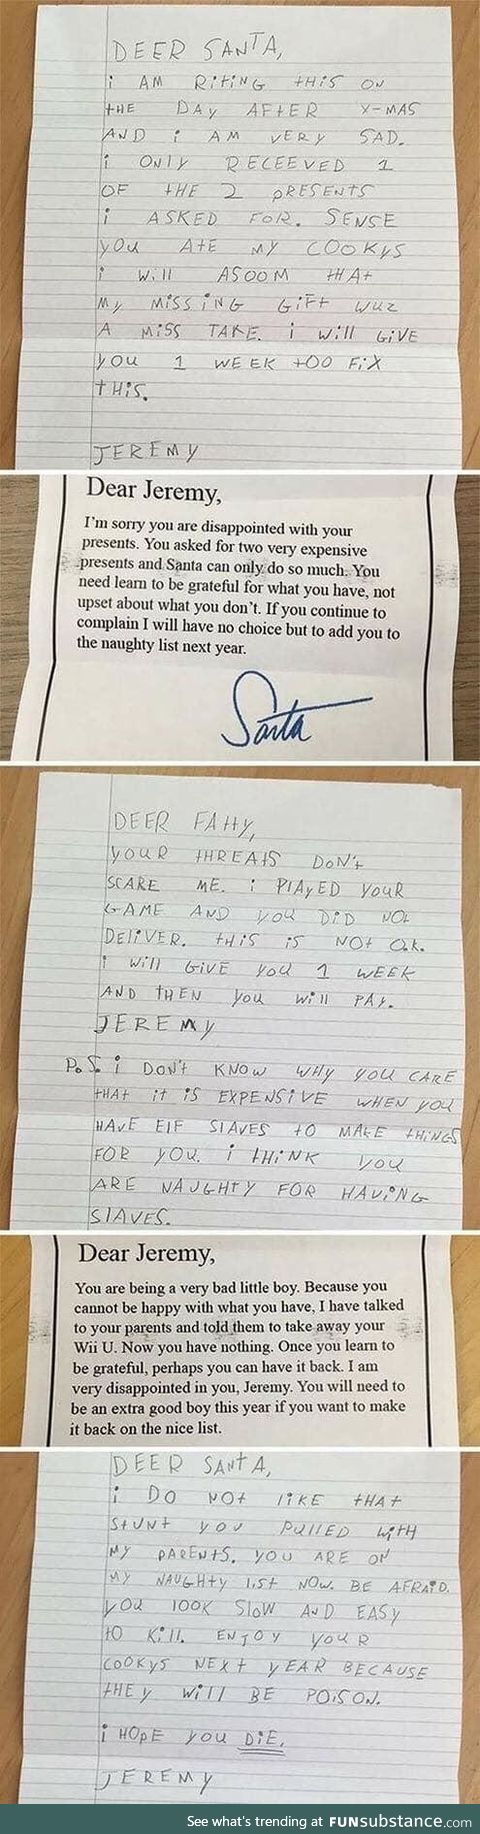 DEER SANTA,
i AM RiTiNG tHiS ON
tHE DAY AFTER X-MAS
AND i AM VERY SAD.
i ONLY RECEEVED 1
OF tHE 2 PRESENTS
i ASKED FOR. SENSE
YOU ATE MY COOKYS
i Will ASOOM tHAt
MY MiSSiNG GiFt WUZ
A MiSS TAKE. i Will GiVE
YOU 1 WEEK tOO FiX
tHiS.
JEREMY
Dear Jeremy,
I'm sorry you are disappointed with your
presents. You asked for two very expensive
presents and Santa can only do so much. You
need learn to be grateful for what you have, not
upset about what you don't. If you continue to
complain I will have no choice but to add you to
the naughty list next year.
Santa
DEER FAttY,
YOUR tHREAtS DON't
SCARE ME. i PlAYED YOUR
GAME AND YOU DiD NOt
DEliVER. tHiS iS NOt O.K.
i Will GiVE YOU 1 WEEK
AND tHEN YOU Will PAY.
JEREMY
P.S. i DON't KNOW WHY YOU CARE
tHAt it iS EXPENSiVE WHEN YOU
HAVE ElF SlAVES tO MAKE tHiNGS
FOR YOU. i tHiNK YOU
ARE NAUGHtY FOR HAViNG
SlAVES.
Dear Jeremy,
You are being a very bad little boy. Because you
cannot be happy with what you have, I have talked
to your parents and told them to take away your
Wii U. Now you have nothing. Once you learn to
be grateful, perhaps you can have it back. I am
very disappointed in you, Jeremy. You will need to
be an extra good boy this year if you want to make
it back on the nice list.
DEER SANtA,
i DO NOt liKE tHAt
StUNt YOU PUllED WitH
MY PARENtS. YOU ARE ON
MY NAUGHtY liSt NOW. BE AFRAiD.
YOU lOOK SlOW AND EASY
tO Kill. ENJOY YOUR
COOKYS NEXt YEAR BECAUSE
tHEY Will BE POiSON.
i HOPE YOU DiE.
JEREMY
See what's trending at FUNsubstance.com